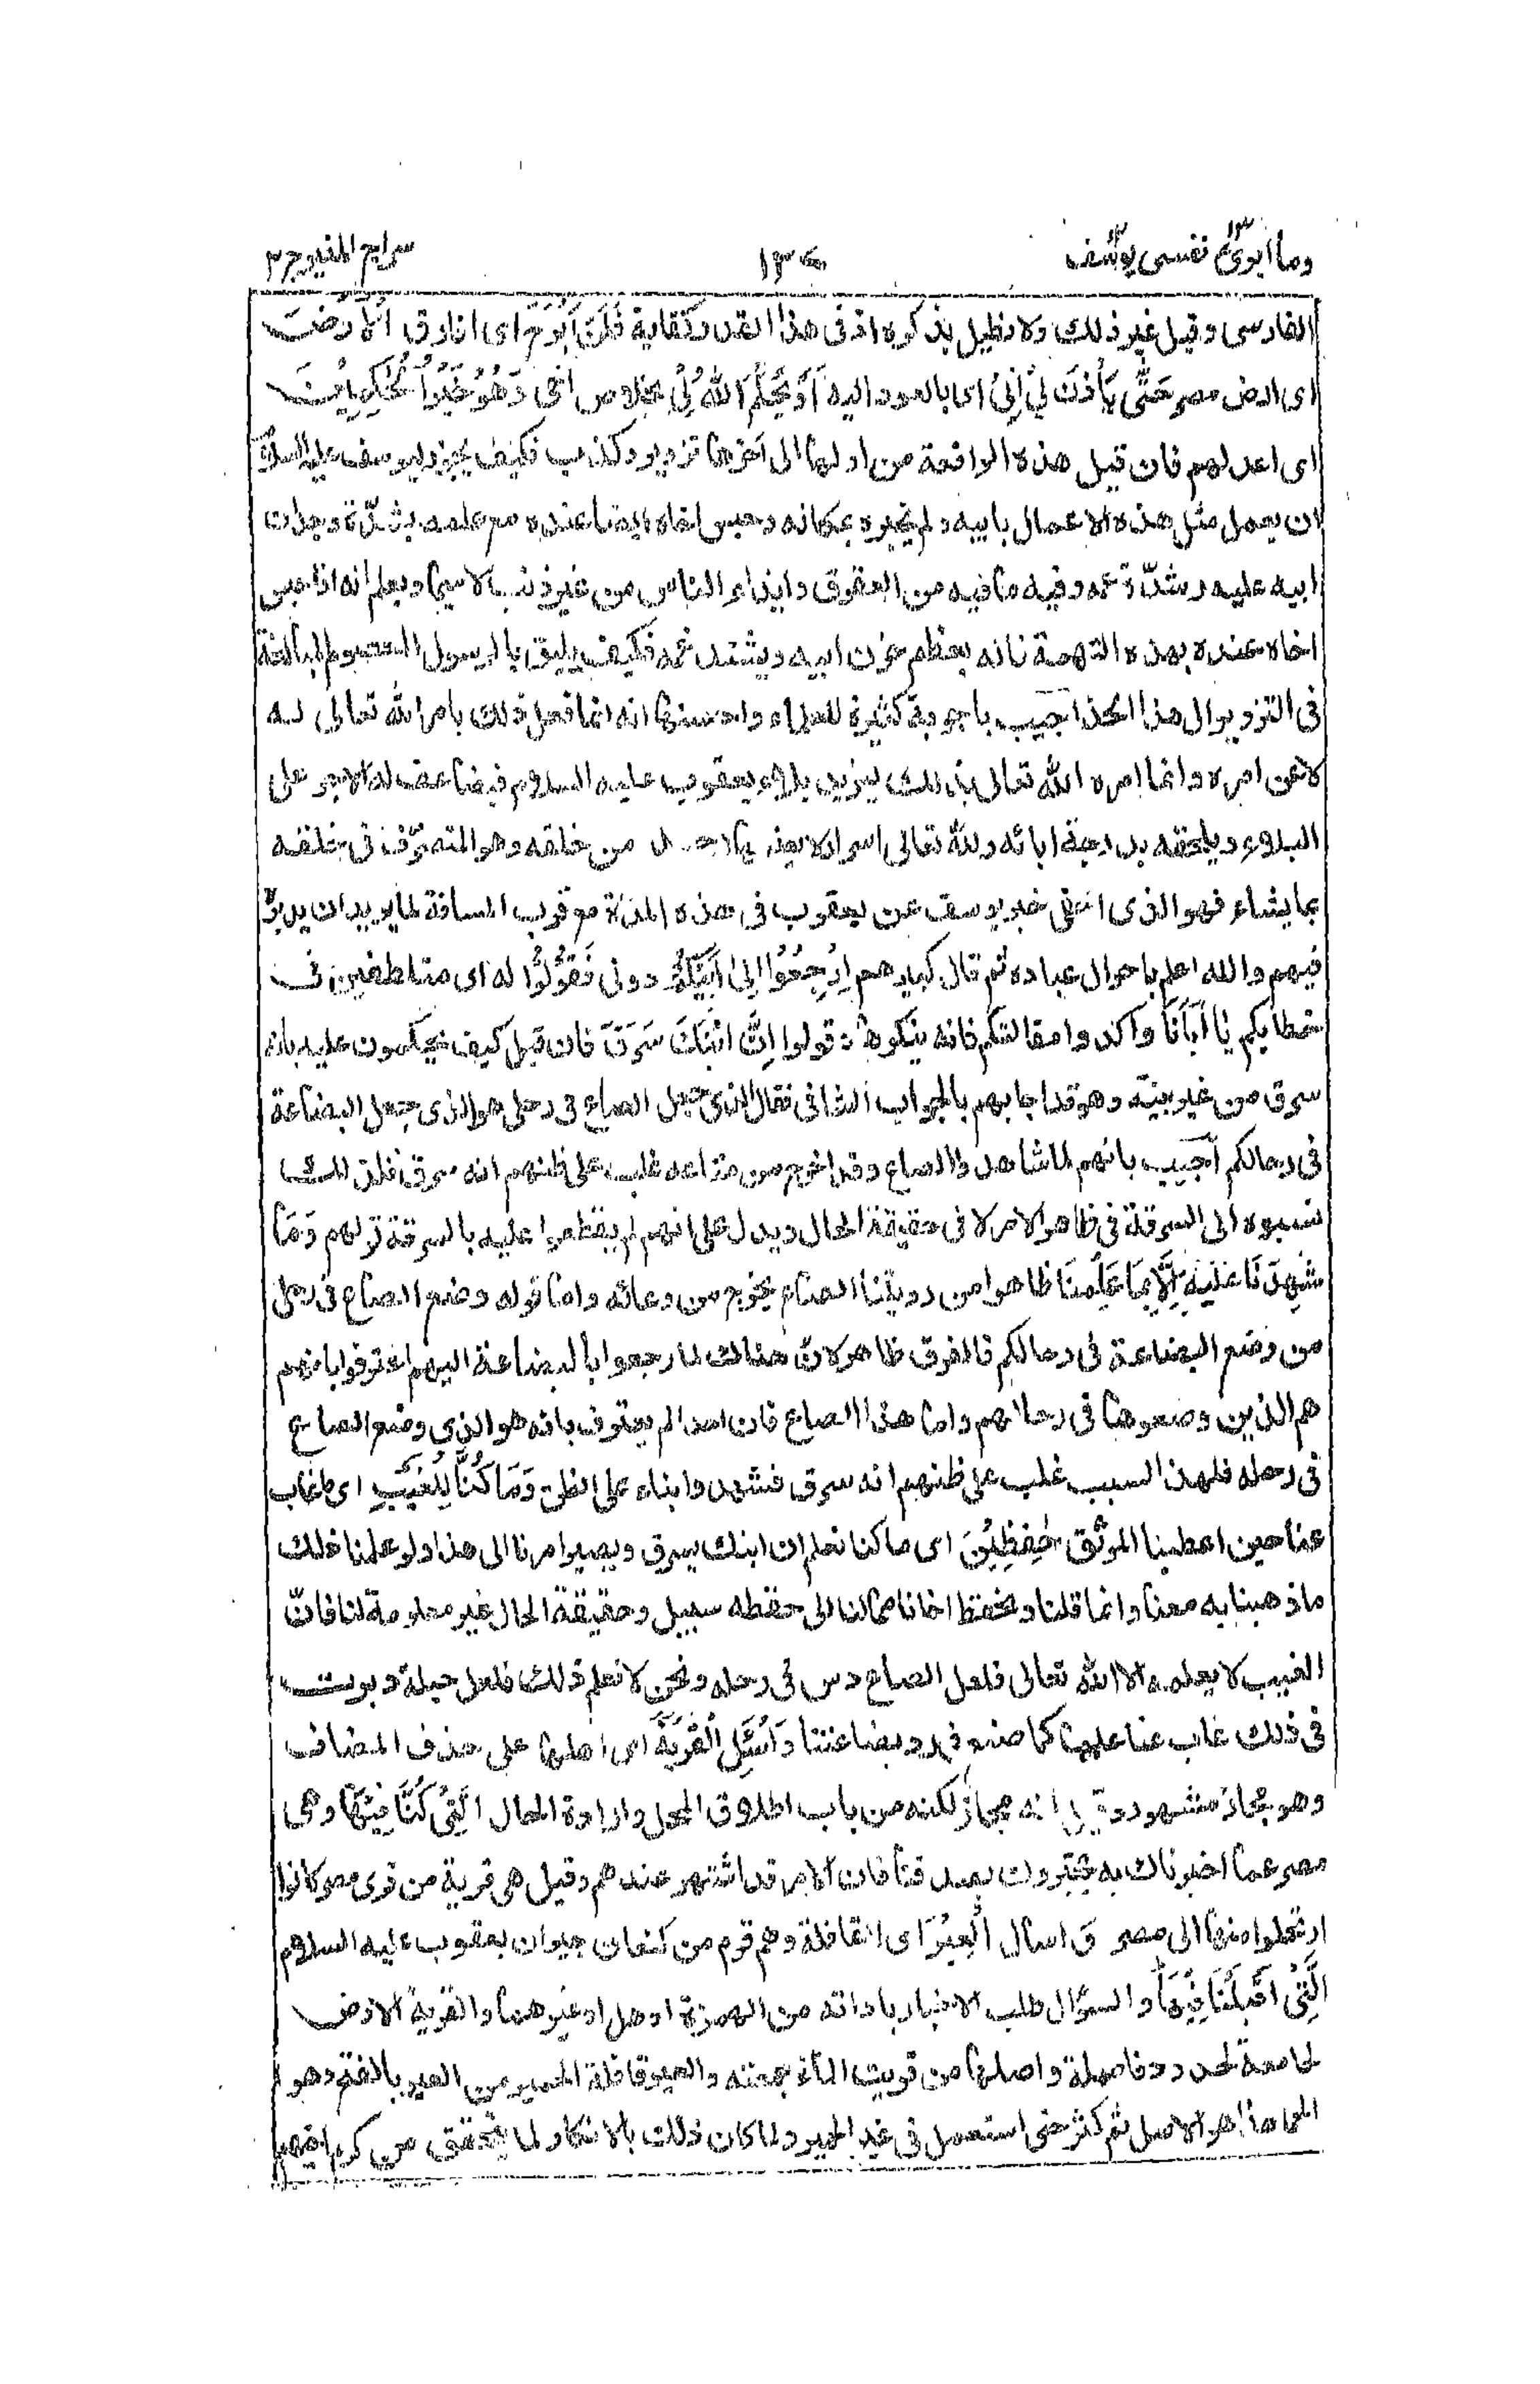 وما ابرئ ١٣ نفسی یوسف ١٢
١٣٠
سراج المنیر ج ٢
الفارسی وقیل غیر ذلك ولا نطیل بذكره اذ فی هذا القدر كفایة فَلَنْ اَبْرَحَ ای افارق الْاَرْضَ
ای ارض مصر حَتّٰی یَأْذَنَ لِیْ اَبِیْ ای بالعود الیه اَوْ یَحْكُمَ اللّٰهُ لِیْ بخلاص اخی وَهُوَ خَیْرُ الْحٰكِمِیْنَ
ای اعدلهم فان قیل هذه الواقعة من اولها الی آخرها تزویر وكذب فكیف یجوز لیوسف علیه السلام
ان یعمل مثل هذه الاعمال بابیه ولم یخبره بمكانه وحبس اخاه ایضا عنده مع علمه بشدّة وجدان
ابیه علیه وشدّة غمه وفیه ما فیه من العقوق وایذاء الناس من غیر ذنب لا سیما ویعلم انه اذا حبس
اخاه عنده بهذه التهمة فانه یعظم حزن ابیه ویشتد غمه فكیف یلیق بالرسول المعصوم المبالغة
فی التزویر الی هذا الحد اجیب باجوبة كثیرة للعلماء واحسنها انه انما فعل ذلك بامر الله تعالی له
لا عن امره وانما امره الله تعالی بذلك لیزید بلاء یعقوب علیه السلام فیضاعف له الاجر علی
البلاء ویلحقه بدرجة ابائه ولله تعالی اسرار لا یعلمها احد من خلقه وهو المتصرّف فی خلقه
بما یشاء فهو الذی اخفی خبر یوسف عن یعقوب فی هذه المدّة مع قرب المسافة لما یرید ان یدبره
فیهم والله اعلم باحوال عباده ثم قال كبیرهم اِرْجِعُوْا اِلٰی اَبِیْكُمْ دونی فَقُوْلُوْا له ای متلطفین فی
خطابكم یَا اَبَانَا واكدوا مقالتكم فانه ینكرها وقولوا اِنَّ ابْنَكَ سَرَقَ فان قیل كیف یحكمون علیه بانه
سرق من غیر بینة وهو قد اجابهم بالجواب الشافی فقال الذی جعل الصاع فی رحلی هو الذی جعل البضاعة
فی رحالكم اجیب بانهم لما شاهدوا الصاع وقد اخرج من متاعه غلب علی ظنهم انه سرق فلذلك
نسبوه الی السرقة فی ظاهر الامر لا فی حقیقة الحال ویدل علی انهم لم یقطعوا علیه بالسرقة قولهم وَمَا
شَهِدْنَا عَلَیْهِ اِلَّا بِمَا عَلِمْنَا ظاهرا من رویتنا الصاع یخرج من وعائه واما قوله وضع الصاع فی رحلی
من وضع البضاعة فی رحالكم فالفرق ظاهر لانّ هنالك لما رجعوا بالبضاعة الیهم اعترفوا بانهم
هم الذین وضعوها فی رحالهم واما هذا الصاع فان احدا لم یعترف بانه هو الذی وضع الصاع
فی رحله فلهذا السبب غلب علی ظنهم انه سرق فشهدوا بناء علی الظن وَمَا كُنَّا لِلْغَیْبِ ای ما غاب
عنا حین اعطینا الموثق حٰفِظِیْنَ ای ما كنا نعلم ان ابنك یسرق ویصیر امرنا الی هذا ولو علمنا ذلك
ما ذهبنا به معنا وانما قلنا ونحفظ اخانا مما لنا الی حفظه سبیل وحقیقة الحال غیر معلومة لنا فانّ
الغیب لا یعلمه الا الله تعالی فلعل الصاع دس فی رحله ونحن لا نعلم ذلك فلعل حیلة دبرت
فی ذلك غاب عنا علمها كما صنع فی رد بضاعتنا وَاسْئَلِ الْقَرْیَةَ ای اهلها علی حذف المضاف
وهو مجاز مشهور وقیل انه مجاز لكنه من باب اطلاق المحل وارادة الحال الَّتِیْ كُنَّا فِیْهَا وهی
مصر عما اخبرناك به یخبروك بصدقنا فان الامر قد اشتهر عندهم وقیل هی قریة من قری مصر كانوا
ارتحلوا منها الی مصر وَ اسال الْعِیْرَ ای القافلة وهم قوم من كنعان جیران یعقوب علیه السلام
الَّتِیْ اَقْبَلْنَا فِیْهَا والسؤال طلب الاخبار باداته من الهمزة او هل او غیرهما والقریة الارض
لجامعة لحدود فاصلة واصلها من قریت الماء جمعته والعیر قافلة الحمیر من العیر بالفتح وهو
الحمار هذا هو الاصل ثم كثر حتی استعمل فی غیر الحمیر ولما كان ذلك بالانكار لما یتحقق من كرم اخیهم